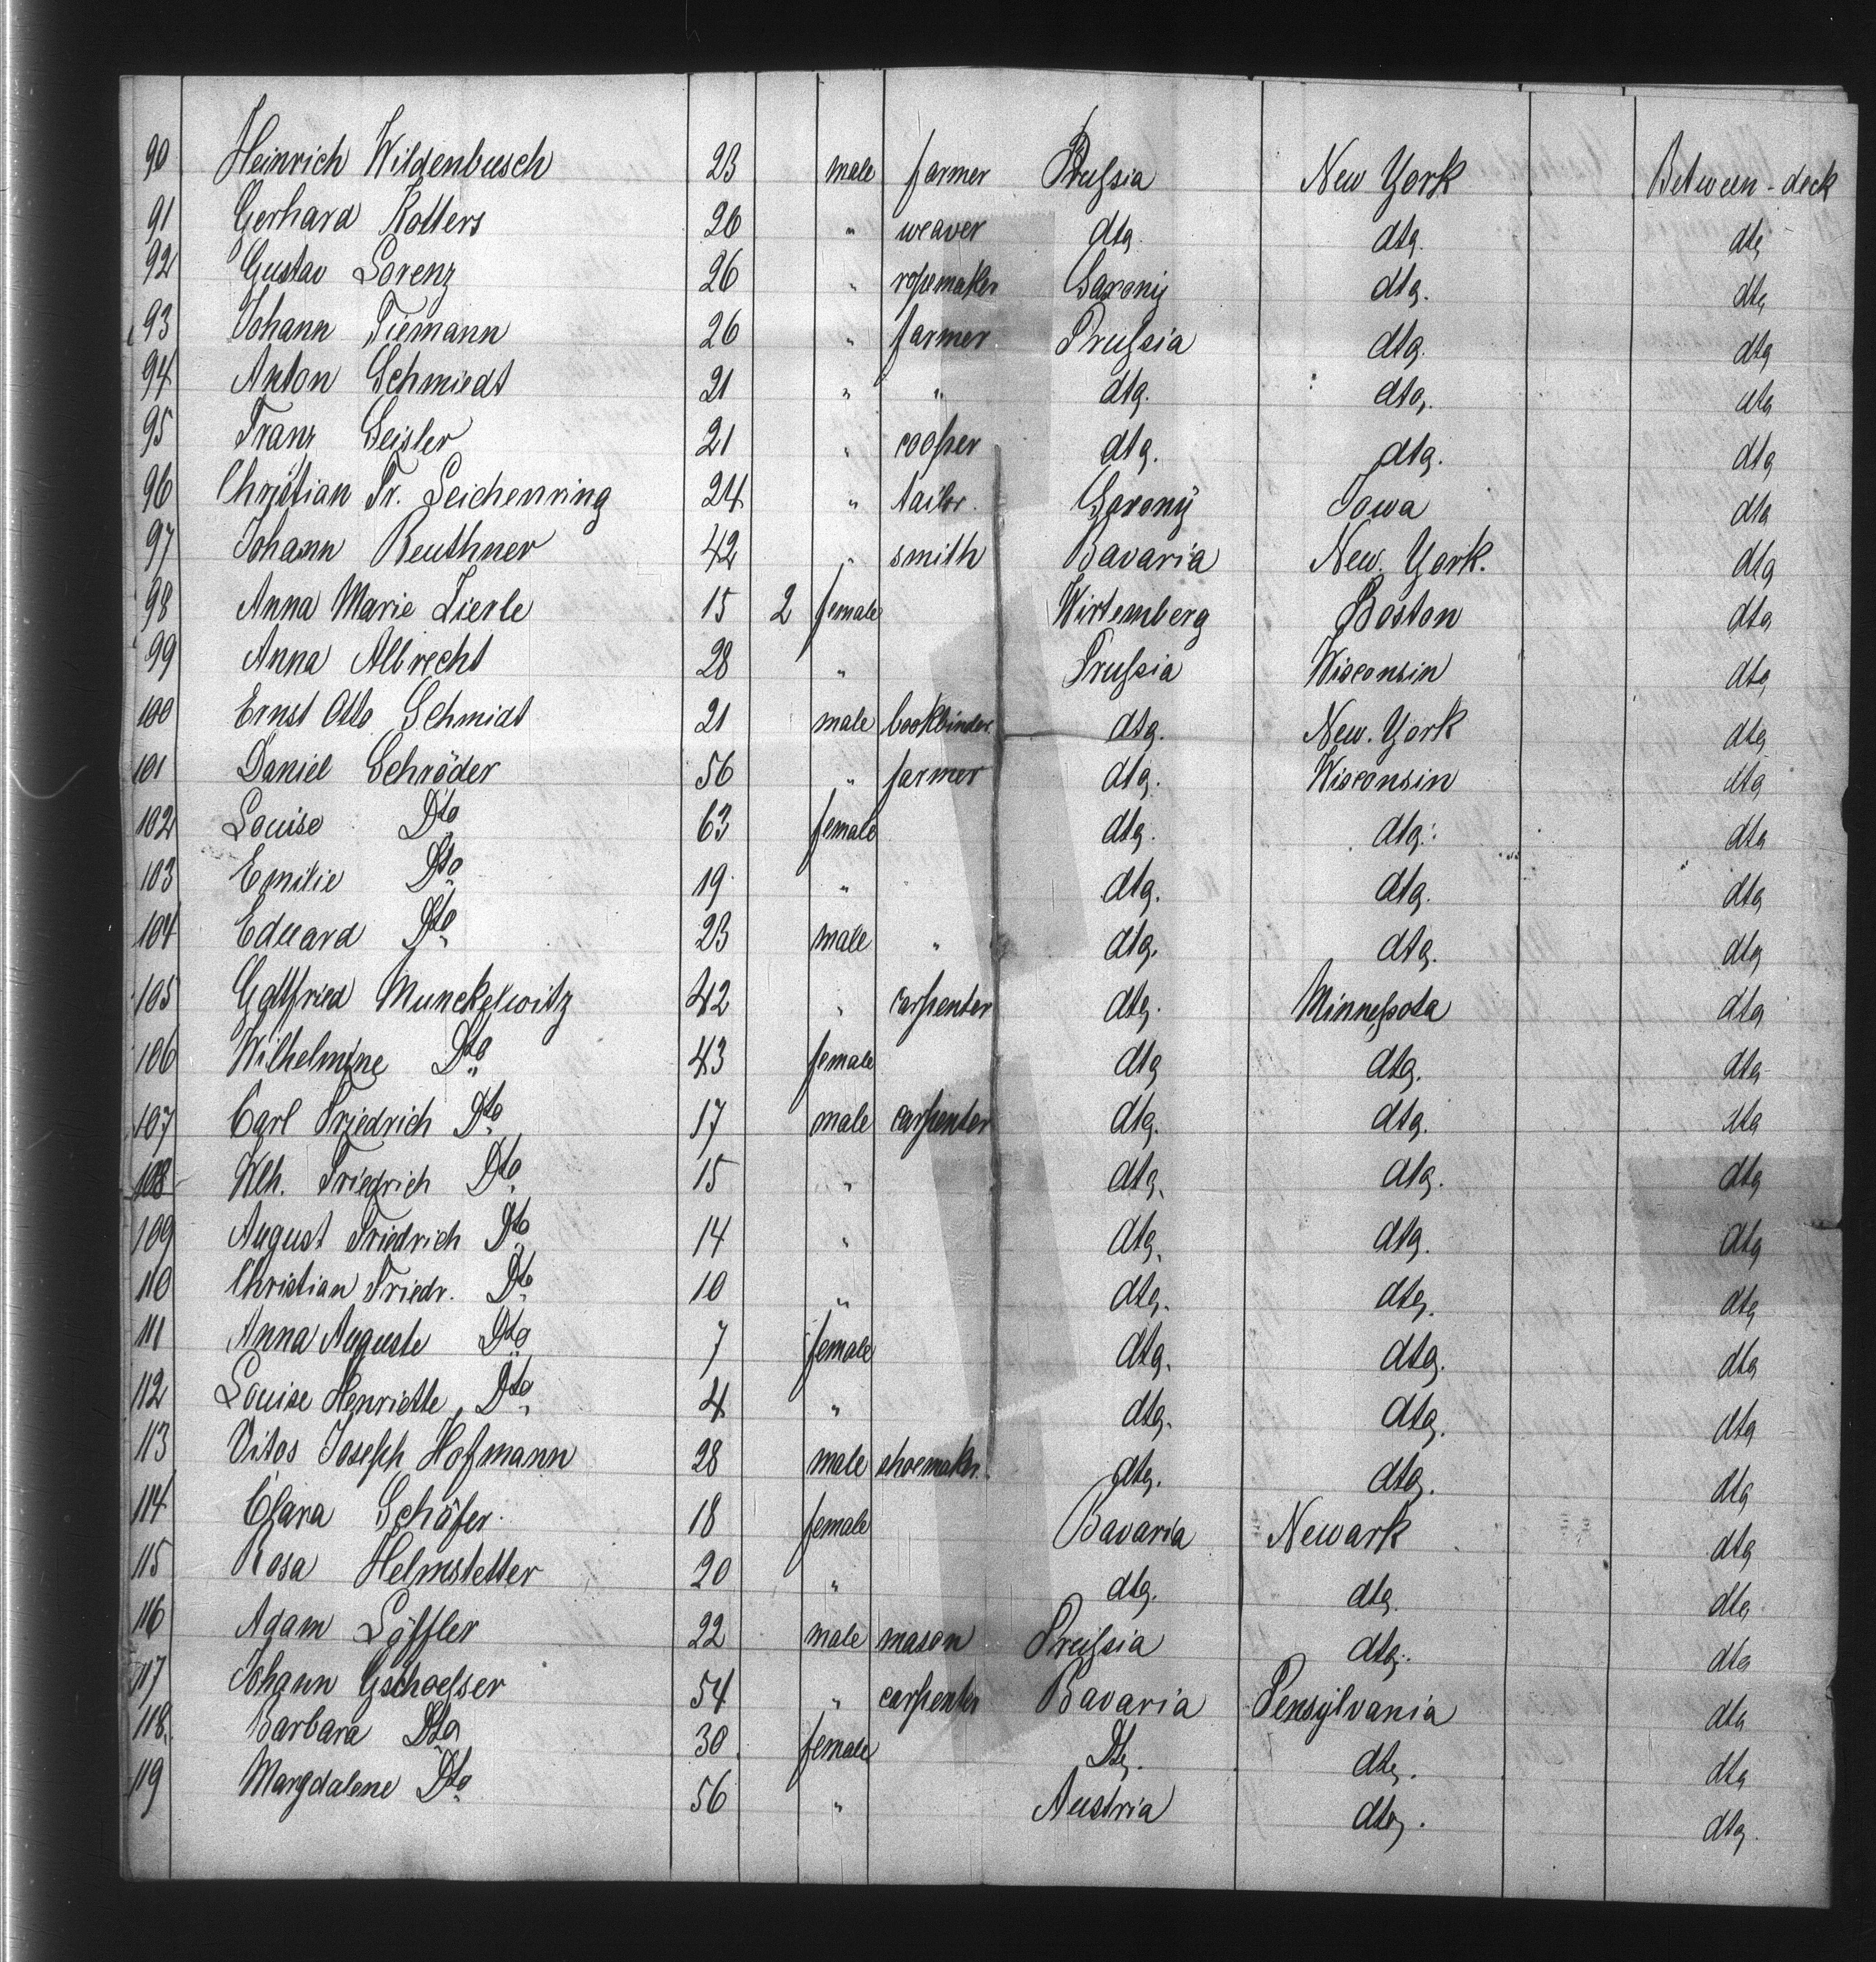 90 Heinrich Wildenbusch 23 male farmer Prussia New York Between-deck
91 Gerhard Rotters 26 " weaver dto. dto. dto
92 Gustav Lorenz 26 " ropemaker Saxony dto. dto
93 Johann Tiemann 26 " farmer Prussia dto. dto
94 Anton Schmiedt 21 " " dto. dto. dto
95 Franz Geisler 21 " cooper dto. dto. dto
96 Christian Fr. Leichenring 24 " tailor. Saxony Iowa dto
97 Johann Reuthner 42 " smith Bavaria New. York. dto
98 Anna Marie Lierle 15 2 female Wirtemberg Boston dto
99 Anna Albrecht 28 " Prussia Wisconsin dto
100 Ernst Otto Schmidt 21 male bookbinder. dto. New. York dto
101 Daniel Schröder 56 " farmer dto. Wisconsin dto
102 Louise Dto 63 female dto. dto. dto
103 Emilie Dto 19 " dto. dto. dto
104 Eduard Dto 23 male " dto. dto. dto
105 Gottfried Munckelwitz 42 " carpenter dto. Minnesota dto
106 Wilhelmine Dto 43 female dto dto. dto
107 Carl Friedrich Dto 17 male carpenter dto. dto. dto
108 Wlh. Friedrich Dto 15 " dto. dto. dto
109 August Friedrich Dto 14 " dto. dto. dto
110 Christian Friedr. Dto 10 " dto. dto. dto
111 Anna Auguste Dto 7 female dto. dto. dto
112 Louise Henriette, Dto 4 " dto. dto. dto
113 Vitos Joseph Hofmann 28 male shoemakr. dto. dto. dto
114 Clara Schäfer 18 female Bavaria Newark dto
115 Rosa Helmstetter 20 " dto. dto. dto
116 Adam Löffler 22 male mason Prussia dto. dto
117 Johann Gschoesser 54 " carpenter Bavaria Pensylvania dto
118. Barbara Dto 30 female Dto. dto. dto
119 Margdalene Dto 56 " Austria dto. dto.